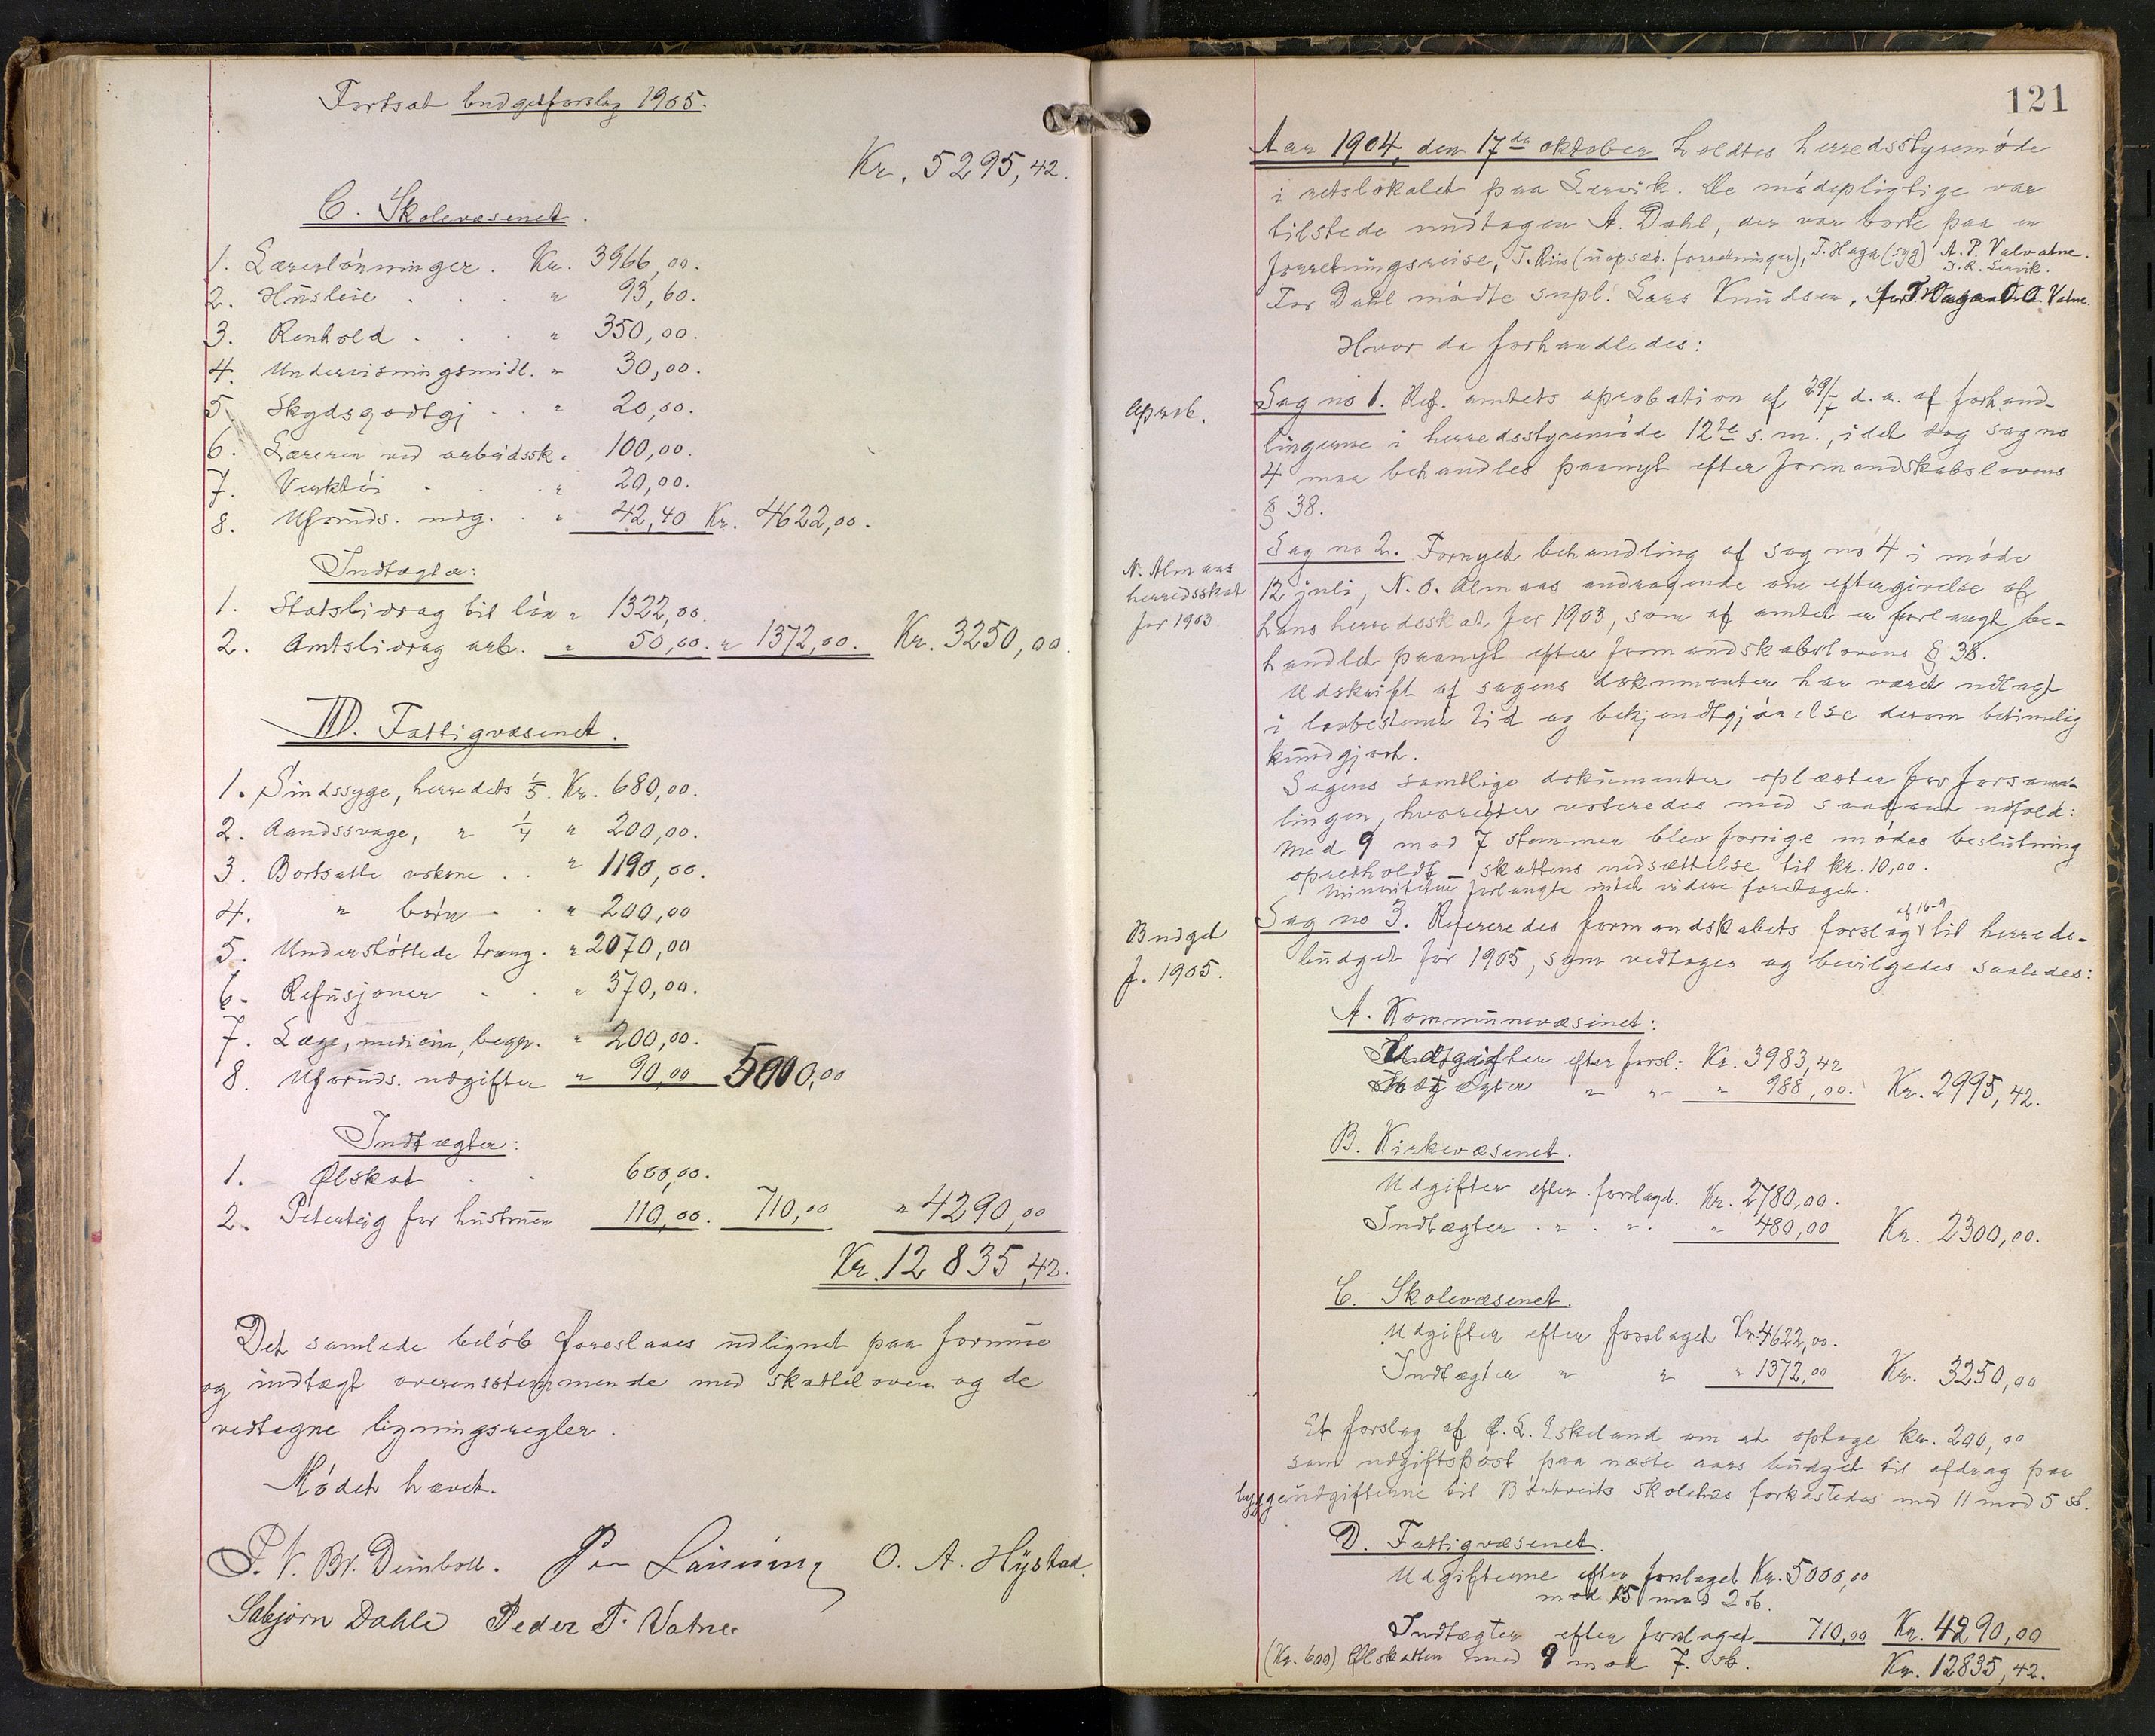 Fortsat budgetforslag 1905.
Kr. 5295,42.
C. Skolevæsenet.
1. Lærerlönninger. Kr. 3966,00.
2. Husleie . . . " 93,60.
3. Renhold . . . " 350,00.
4. Undervisningsmidl. " 30,00.
5. Skydsgodtgj . . " 20,00.
6. Læreren ved arbeidssk. 100,00.
7. Verktöi . . . " 20,00.
8. Uforuds. udg. . " 42,40 Kr. 4622,00.
Indtægter:
1. Statsbidrag til lön " 1322,00.
2. Amtsbidrag arb. " 50,00. " 1372,00. Kr. 3250,00.
D. Fattigvæsenet.
1. Sindssyge, herredets 1/5. Kr. 680,00.
2. Aandssvage, " 1/4 " 200,00.
3. Bortsatte voksne . . " 1190,00.
4. " börn . . " 200,00
5. Understöttede træng. " 2070,00
6. Refusjoner . . " 370,00.
7. Læge, medicin, begr. " 200,00.
8. Uforuds. udgifter " 90,00 5000,00
Indtægter:
1. Ölskat . . 600,00.
2. for hustruen 110,00. 710,00 " 4290,00
Kr. 12 835,42.
Det samlede belöb foreslaaes udlignet paa formue
og indtægt overensstemmende med skatteloven og de
vedtagne ligningsregler.
Mödet hævet.
P. V. Br. Deinboll. Peder Lönning O. A. Hystad.
Salgjörn Dahle Peder T. Vatne.
121
Aar 1904, den 17de oktober holdtes herredsstyremöde
i retslokalet paa Lervik. De mödepligtige var
tilstede undtagen A. Dahl, der var borte paa en
forretningsreise, T. Riis (uopsæt. forretninger), T. Haga (syg) A. P. Valvatne.
J. R. Lervik.
For Dahl mödte supl. Lars Knudsen, for T. Haga O. O. Vatne.
Hvor da forhandledes:
Aprob.
Sag no 1. Ref. amtets aprobation af 29/7 d. a. af forhand-
lingerne i herredsstyremöde 12te s. m., idet dog sag no
4 maa behandles paanyt efter formandskabslovens
§ 38.
N. Almaas
herredsskat
for 1903
Sag no 2. Fornyet behandling af sag no 4 i möde
12 juli, N. O. Almaas andragende om eftergivelse af
hans herredsskat for 1903, som af amtet er forlangt be-
handlet paanyt efter formandskabslovens § 38.
Udskrift af sagens dokumenter har været udlagt
i lovbestemt tid og bekjendtgjörelse derom betimelig
kundgjort.
Sagens samtlige dokumenter oplæstes for forsam-
lingen, hvorefter voteredes med saadant udfald:
Med 9 mod 7 stemmer blev forrige mödes beslutning
opretholdt – skattens nedsættelse til kr. 10,00.
Minoriteten forlangte intet videre foretaget.
Budget
f. 1905.
Sag no 3. Refereredes formandskabets forslag af 16-9 til herreds-
budget for 1905, som vedtoges og bevilgedes saaledes:
A. Kommunevæsinet:
Udgifter efter forsl: Kr. 3983,42
Indtægter " " " 988,00. Kr. 2995,42.
B. Kirkevæsenet.
Udgifter efter forslaget. Kr. 2780,00.
Indtægter . " . " . " 480,00 Kr. 2300,00.
C. Skolevæsenet.
Udgifter efter forslaget Kr. 4622,00.
Indtægter " " " 1372,00 Kr. 3250,00
Et forslag af L. Eskeland om at optage kr. 200,00
som udgiftspost paa næste aars budget til afdrag paa
byggeudgifterne til skolehus forkastedes med 11 mod 5 st.
D. Fattigvæsenet.
Udgifterne efter forslaget Kr. 5000,00
med 15 mod 2 st.
Indtægter efter forslaget 710,00 Kr. 4290,00
(Kr. 600) Ölskatten med 9 mod 7. st. Kr. 12835,42.